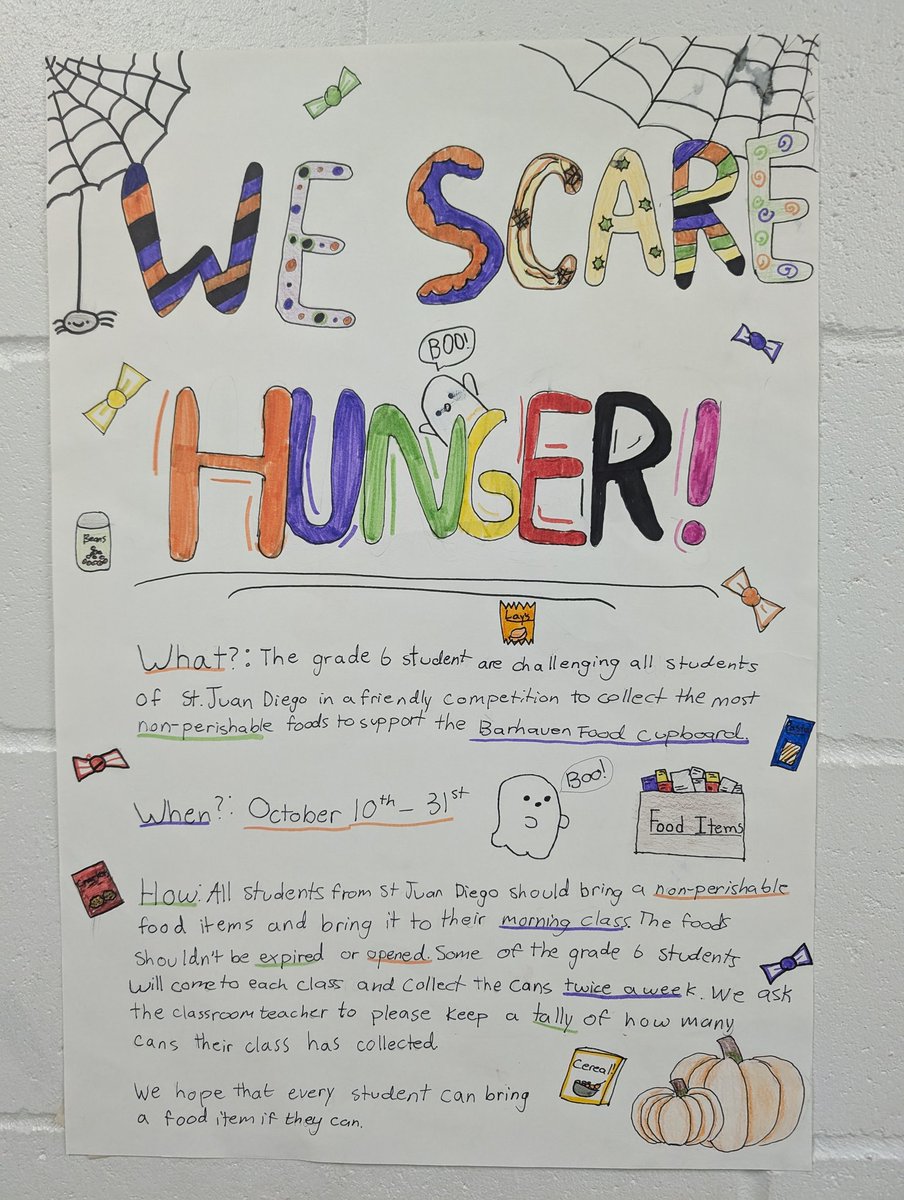 WE SCARE
BOO!
HUNGER!
Beans
Lay's
What?: The grade 6 student are challenging all students
of St. Juan Diego in a friendly competition to collect the most
non-perishable foods to support the Barhaven Food cupboard.
When?: October 10th - 31st
Boo!
Food Items
How: All students from St Juan Diego should bring a non-perishable
food items and bring it to their morning class. The foods
shouldn't be expired or opened. Some of the grade 6 students
will come to each class and collect the cans twice a week. We ask
the classroom teacher to please keep a tally of how many
cans their class has collected
Cereal!
We hope that every student can bring
a food item if they can.